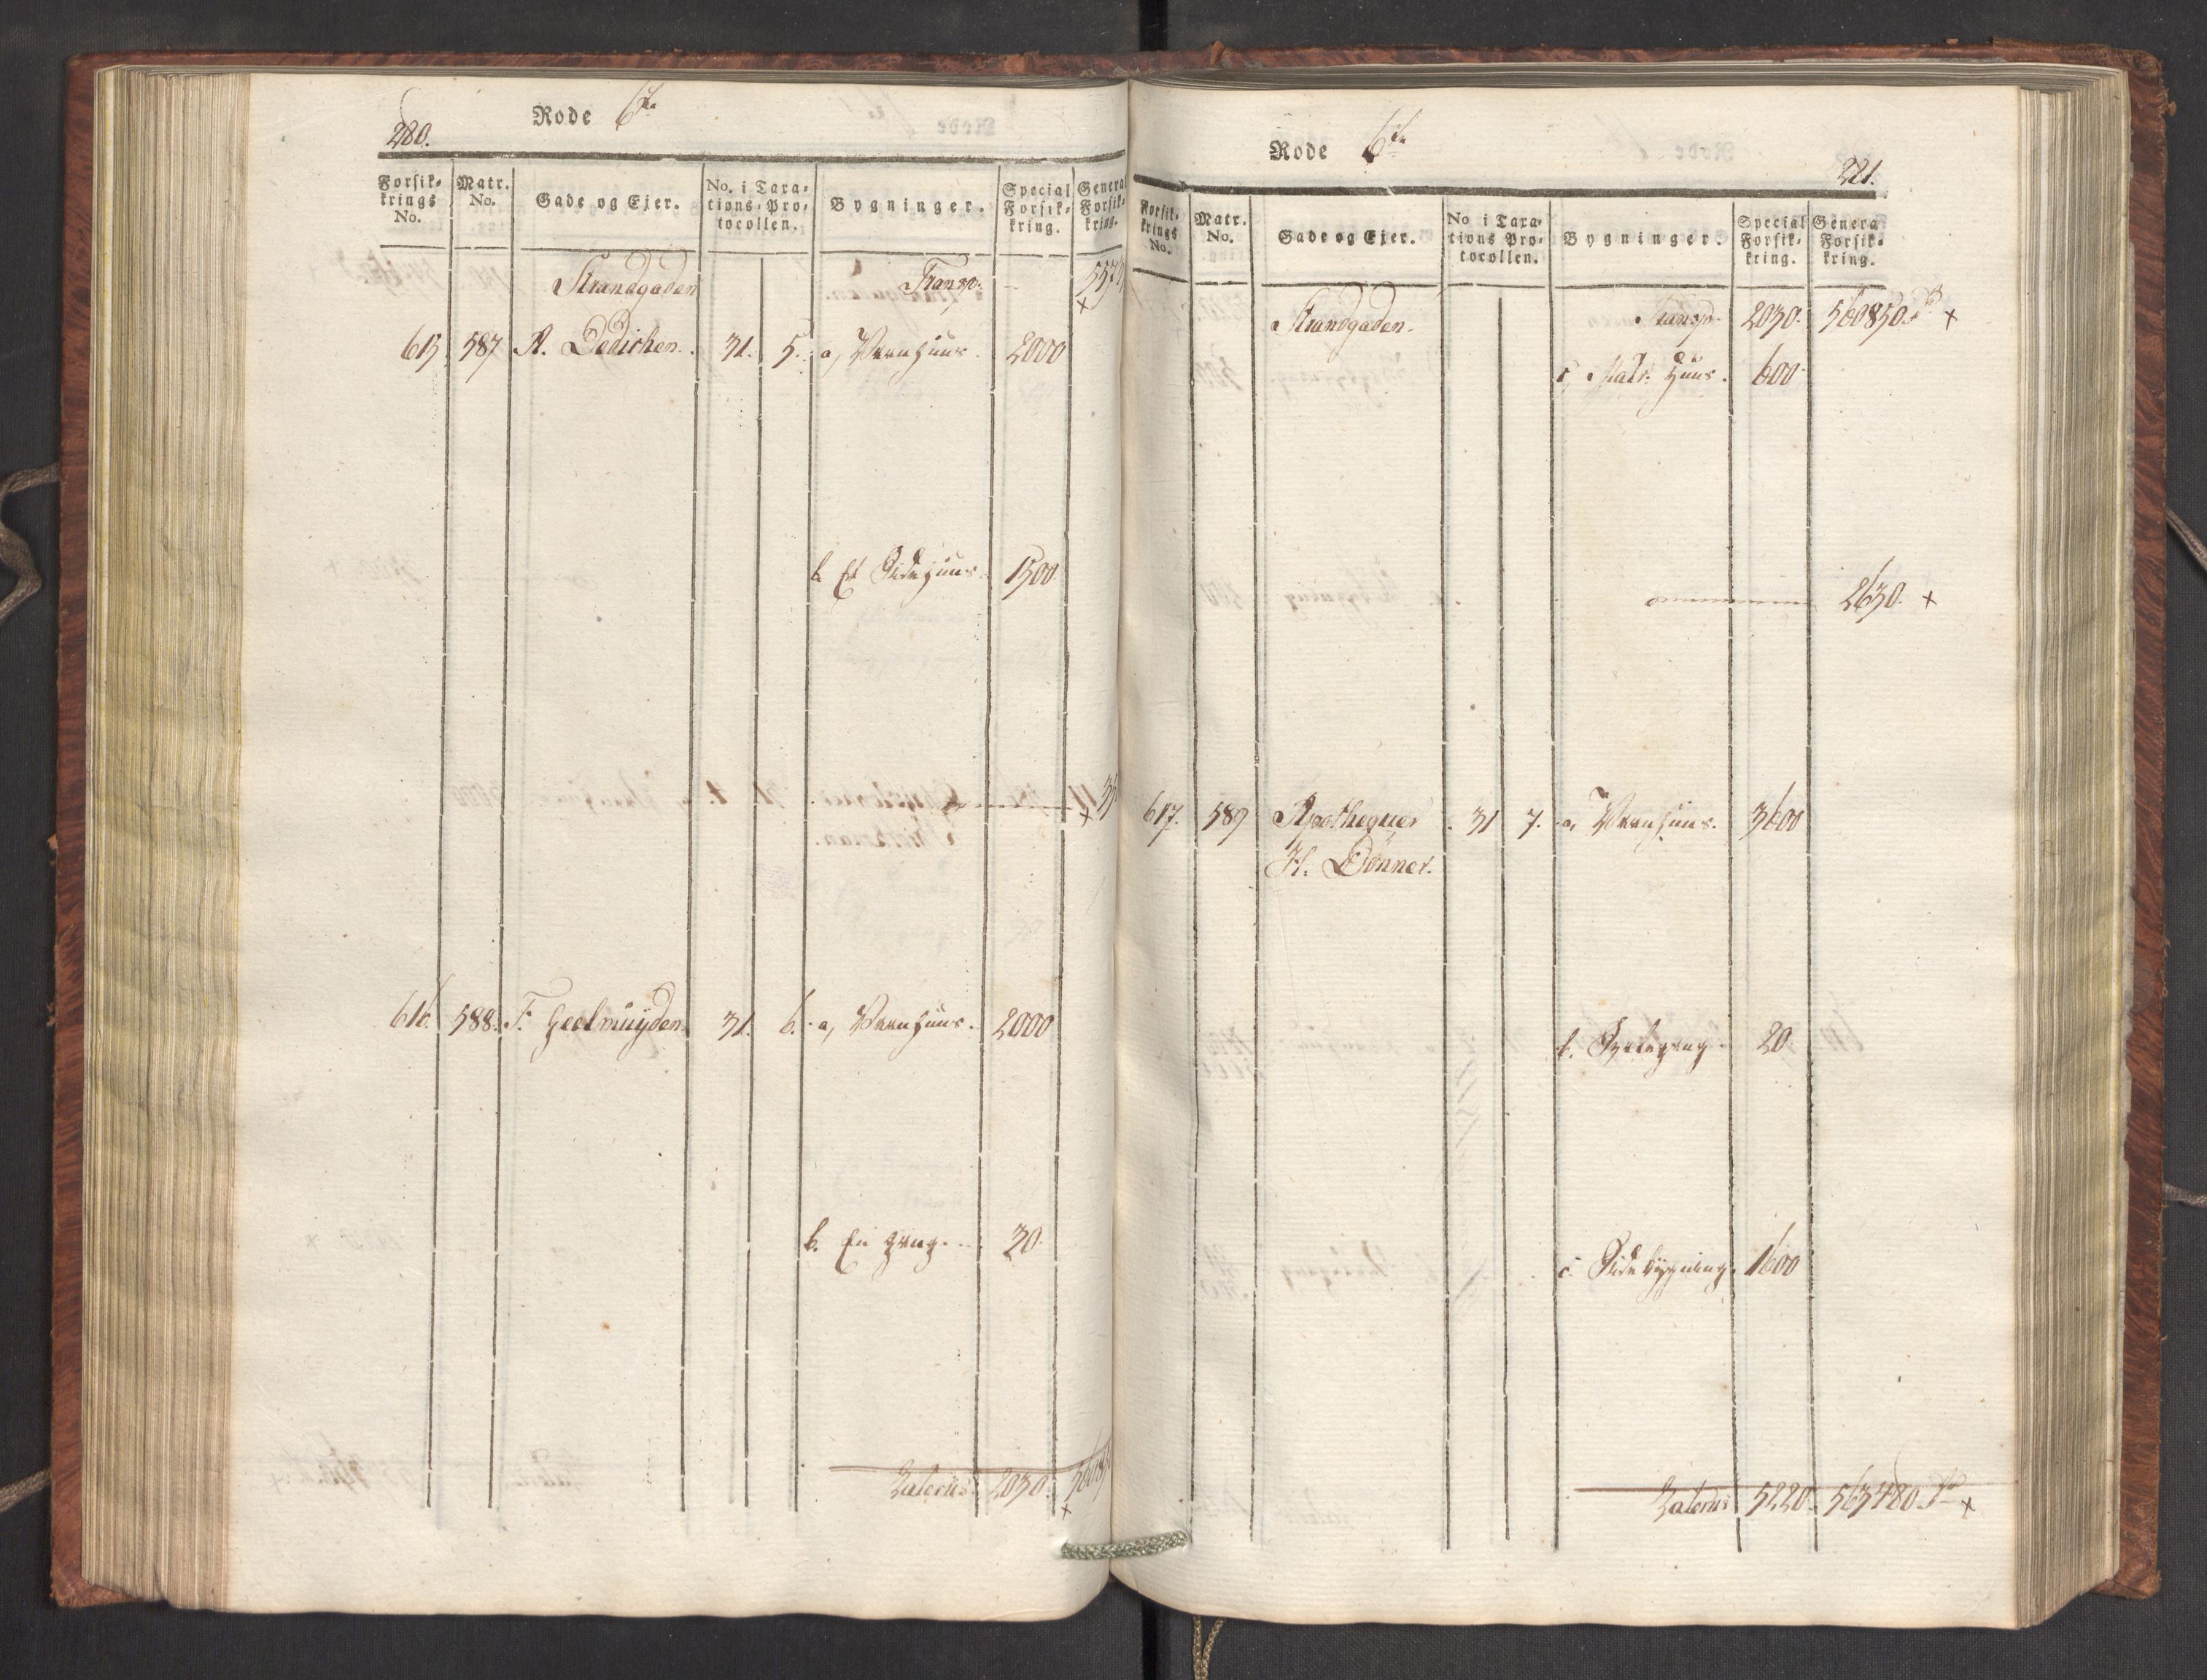 280.
Rode 6te
Forsik- krings No. Matr. No. Gade og Ejer. No. i Taxa- tions-Pro- tocollen. Bygninger. Special Forsik- kring. General Forsik- kring.
Strandgaden Transp.
615. 587 A. Dedichen. 31. 5. a, Vaanhuus. 2000
b. Et Sidehuus 1500
616. 588. F. Geelmuyden. 31. 6. a, Vaanhuus. 2000
b. En gang. 30.
Lateris 2030.
Rode 6te
221.
Forsik- krings No. Matr. No. Gade og Ejer. No i Taxa- tions Pro- tocollen. Bygninger. Special Forsik- kring. Genera Forsik- kring.
Strandgaden. Transp. 2030. 560850. x
c, Huus. 600
2630. x
617. 589 Apothequer 31 7. a, Vaanhuus. 3600
H. Dønner.
b. 20.
c. Sidebygning. 1600
Lateris 5220. 563480. x